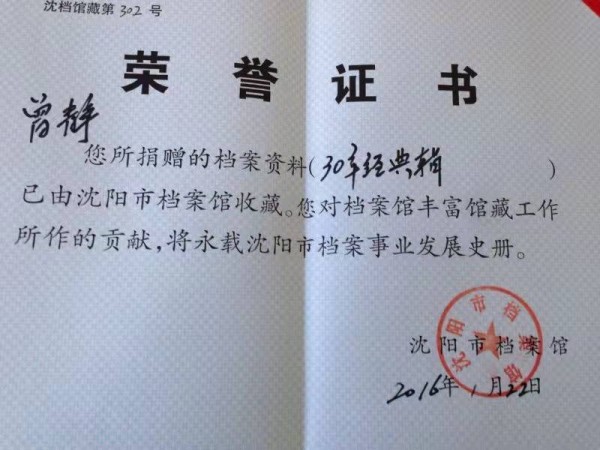 沈档馆藏第302号
荣誉证书
曾静
您所捐赠的档案资料(30年经典辑)
已由沈阳市档案馆收藏。您对档案馆丰富馆藏工作
所作的贡献,将永载沈阳市档案事业发展史册。
沈阳市档案馆
沈阳市档案馆
2016年1月22日